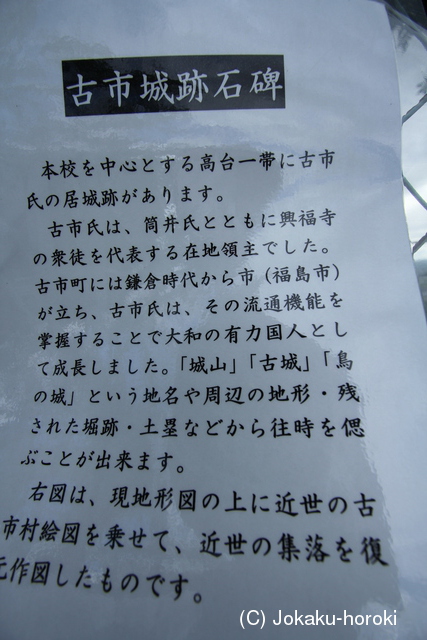 古市城跡石碑
本校を中心とする高台一帯に古市
氏の居城跡があります。
古市氏は、筒井氏とともに興福寺
の衆徒を代表する在地領主でした。
古市町には鎌倉時代から市（福島市）
が立ち、古市氏は、その流通機能を
掌握することで大和の有力国人とし
て成長しました。「城山」「古城」「鳥
の城」という地名や周辺の地形・残
された堀跡・土塁などから往時を偲
ぶことが出来ます。
右図は、現地形図の上に近世の古
市村絵図を乗せて、近世の集落を復
元作図したものです。
(C) Jokaku-horoki